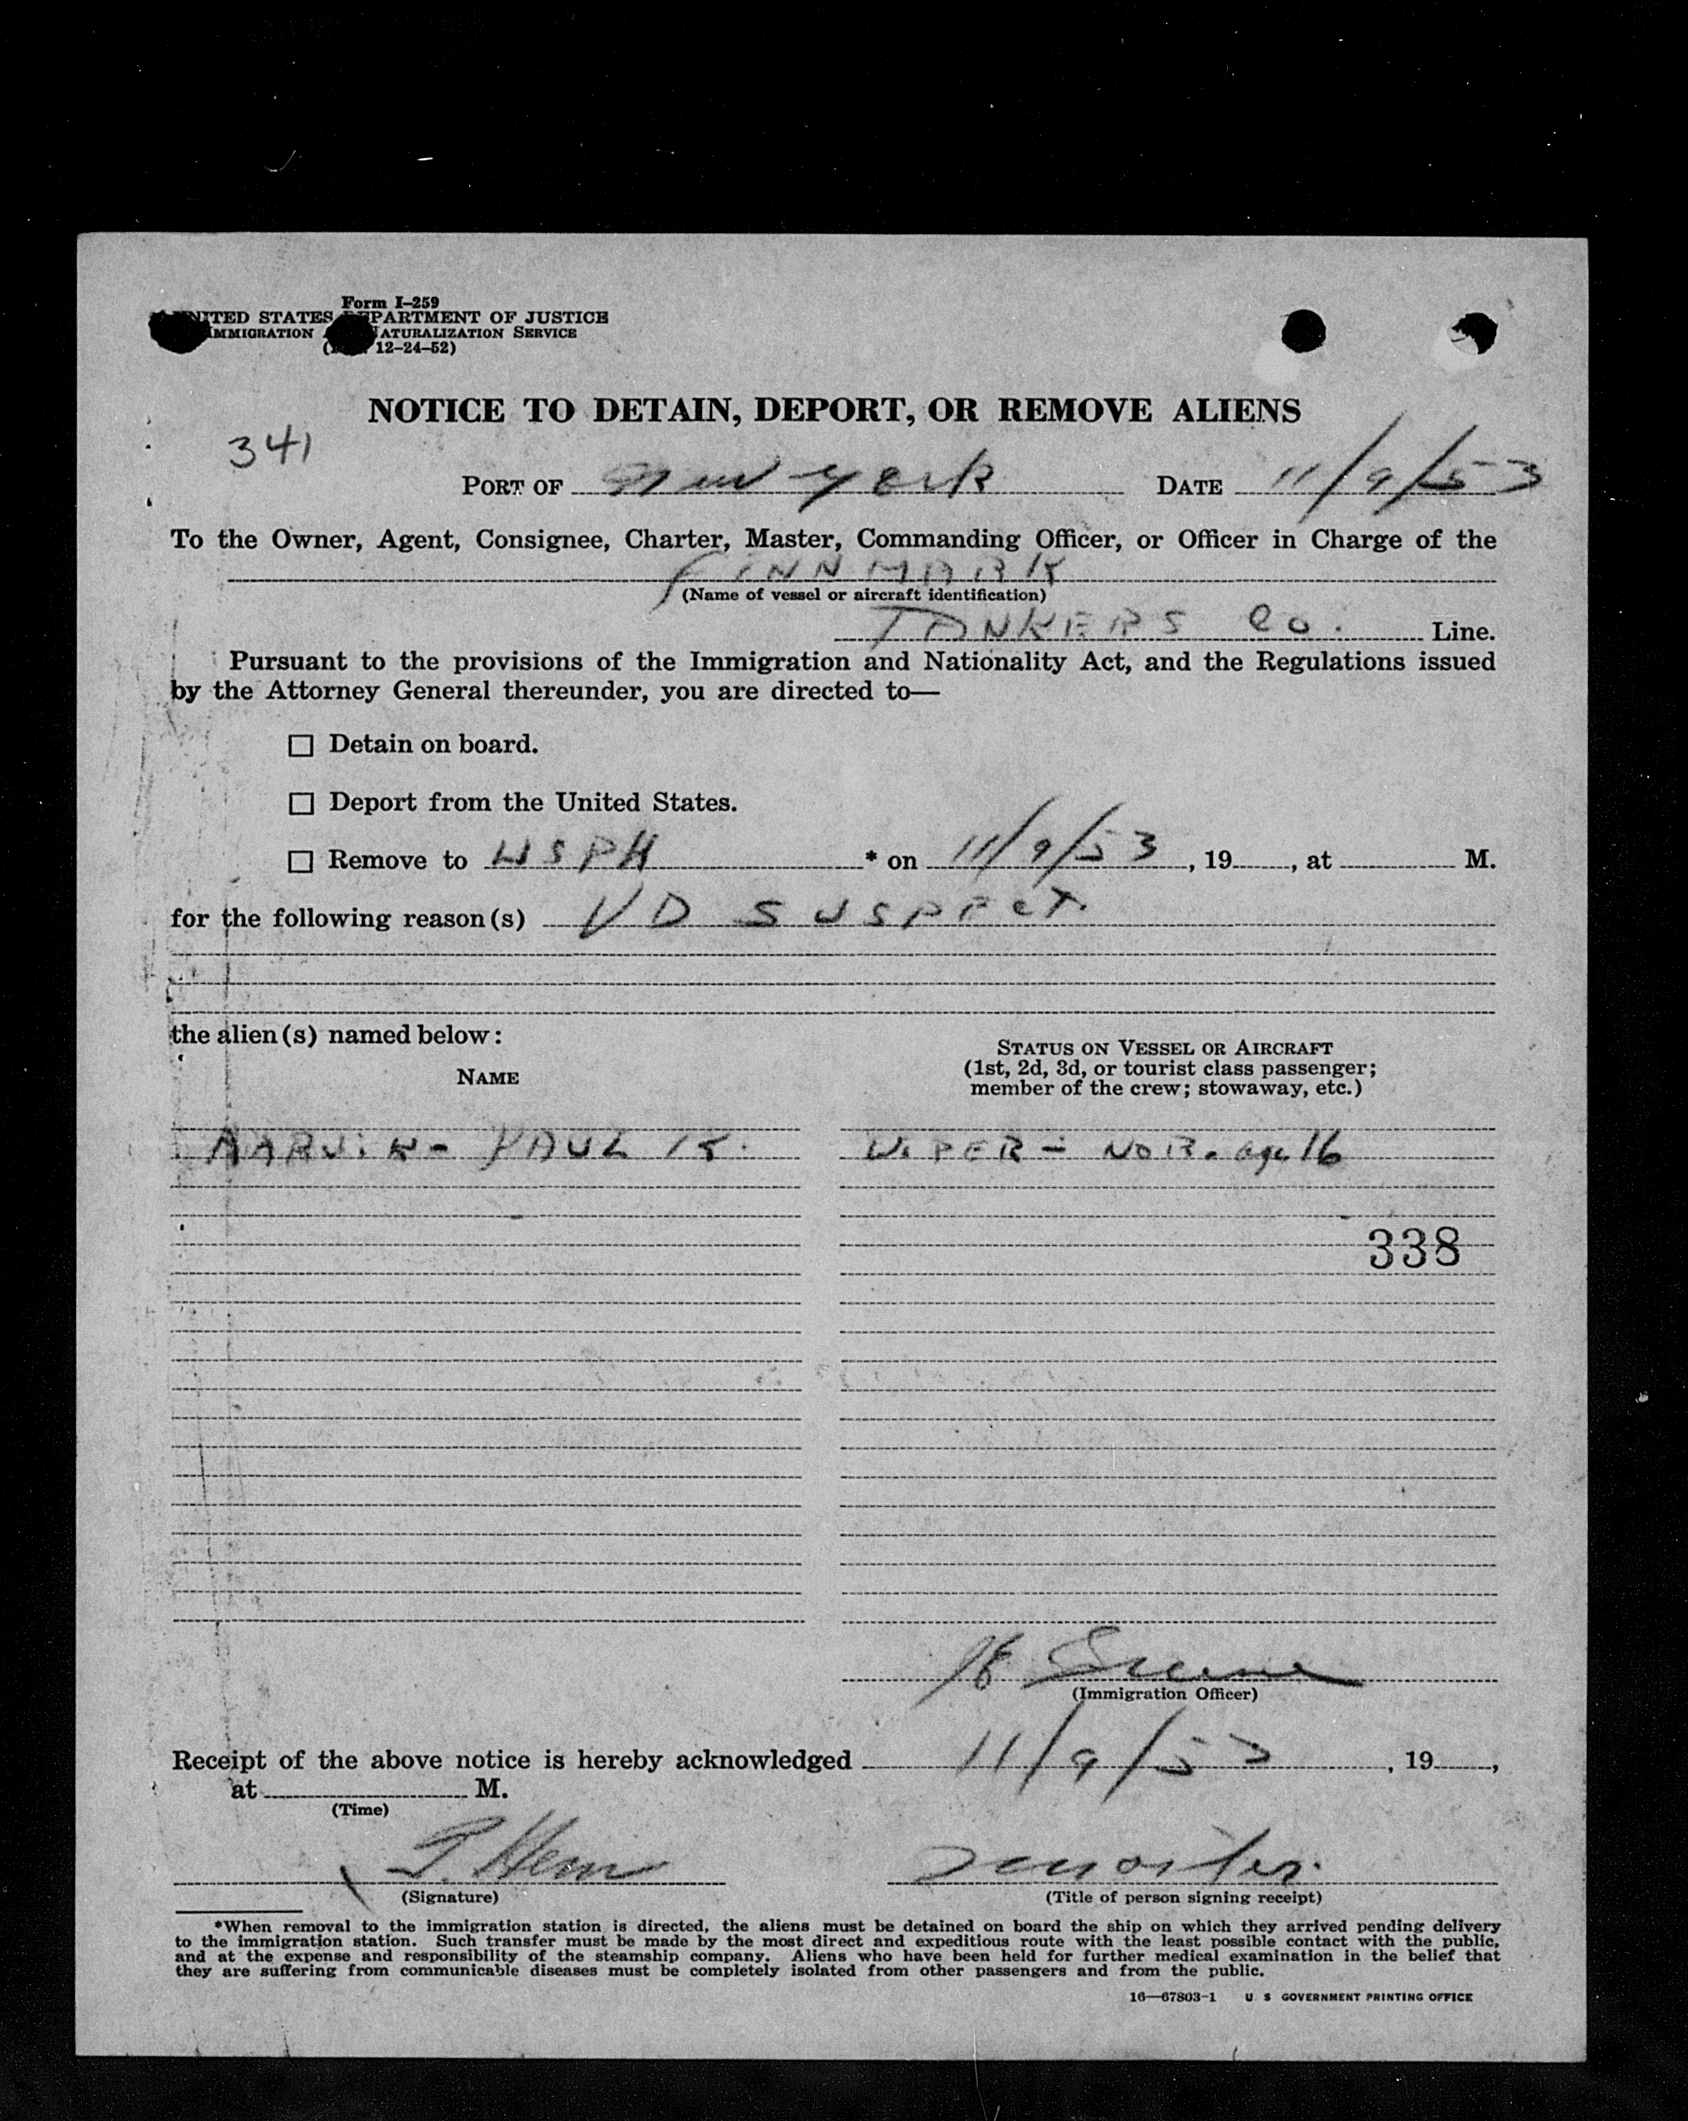 Form I-259
UNITED STATES DEPARTMENT OF JUSTICE
IMMIGRATION NATURALIZATION SERVICE
12-24-52)
NOTICE TO DETAIN, DEPORT, OR REMOVE ALIENS
341
PORT OF New York DATE 11/9/53
To the Owner, Agent, Consignee, Charter, Master, Commanding Officer, or Officer in Charge of the
FINNMARK
(Name of vessel or aircraft identification)
TANKERS Co. Line.
Pursuant to the provisions of the Immigration and Nationality Act, and the Regulations issued
by the Attorney General thereunder, you are directed to—
☐ Detain on board.
☐ Deport from the United States.
☐ Remove to USPH * on 11/9/53, 19, at M.
for the following reason(s) VD SUSPECT.
the alien(s) named below:
STATUS ON VESSEL OR AIRCRAFT
(1st, 2d, 3d, or tourist class passenger;
member of the crew; stowaway, etc.)
NAME
AARVIK- PAUL K. WIPER - NOR. age 16
338
(Immigration Officer)
Receipt of the above notice is hereby acknowledged 11/9/53, 19,
at M.
(Time)
(Signature) (Title of person signing receipt)
*When removal to the immigration station is directed, the aliens must be detained on board the ship on which they arrived pending delivery
to the immigration station. Such transfer must be made by the most direct and expeditious route with the least possible contact with the public,
and at the expense and responsibility of the steamship company. Aliens who have been held for further medical examination in the belief that
they are suffering from communicable diseases must be completely isolated from other passengers and from the public.
16—67803-1 U S GOVERNMENT PRINTING OFFICE